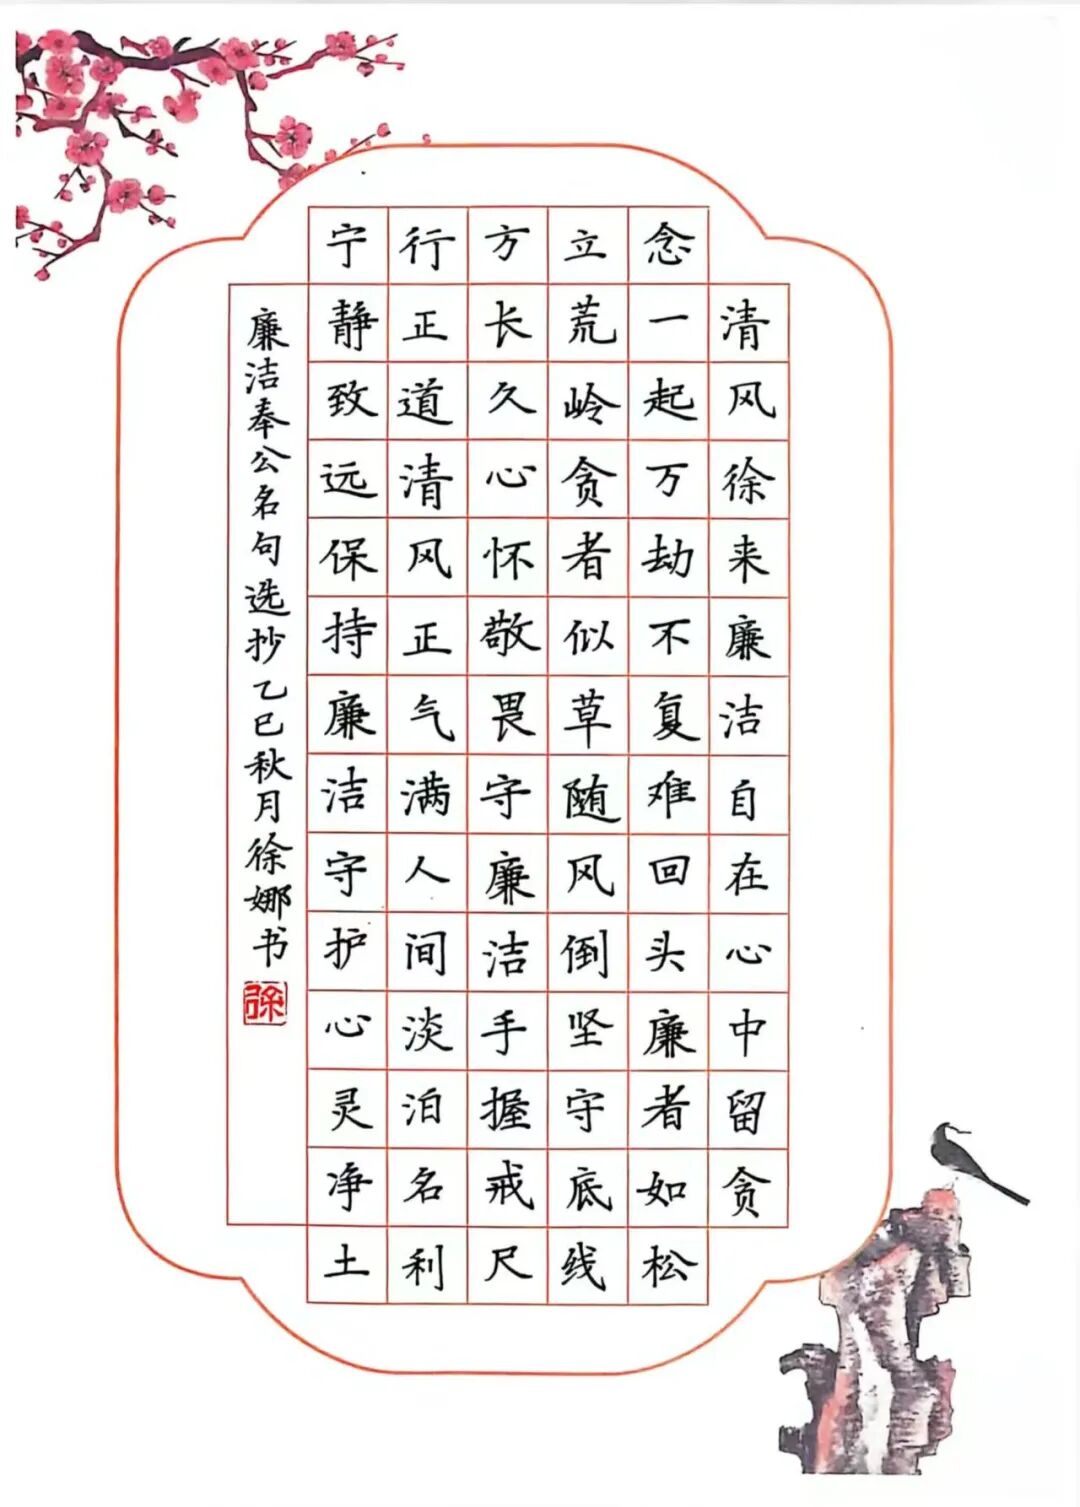 清风徐来廉洁自在心中留贪
念一起万劫不复难回头廉者如松
立荒岭贪者似草随风倒坚守底线
方长久心怀敬畏守廉洁手握戒尺
行正道清风正气满人间淡泊名利
宁静致远保持廉洁守护心灵净土
廉洁奉公名句选抄乙巳秋月徐娜书
徐